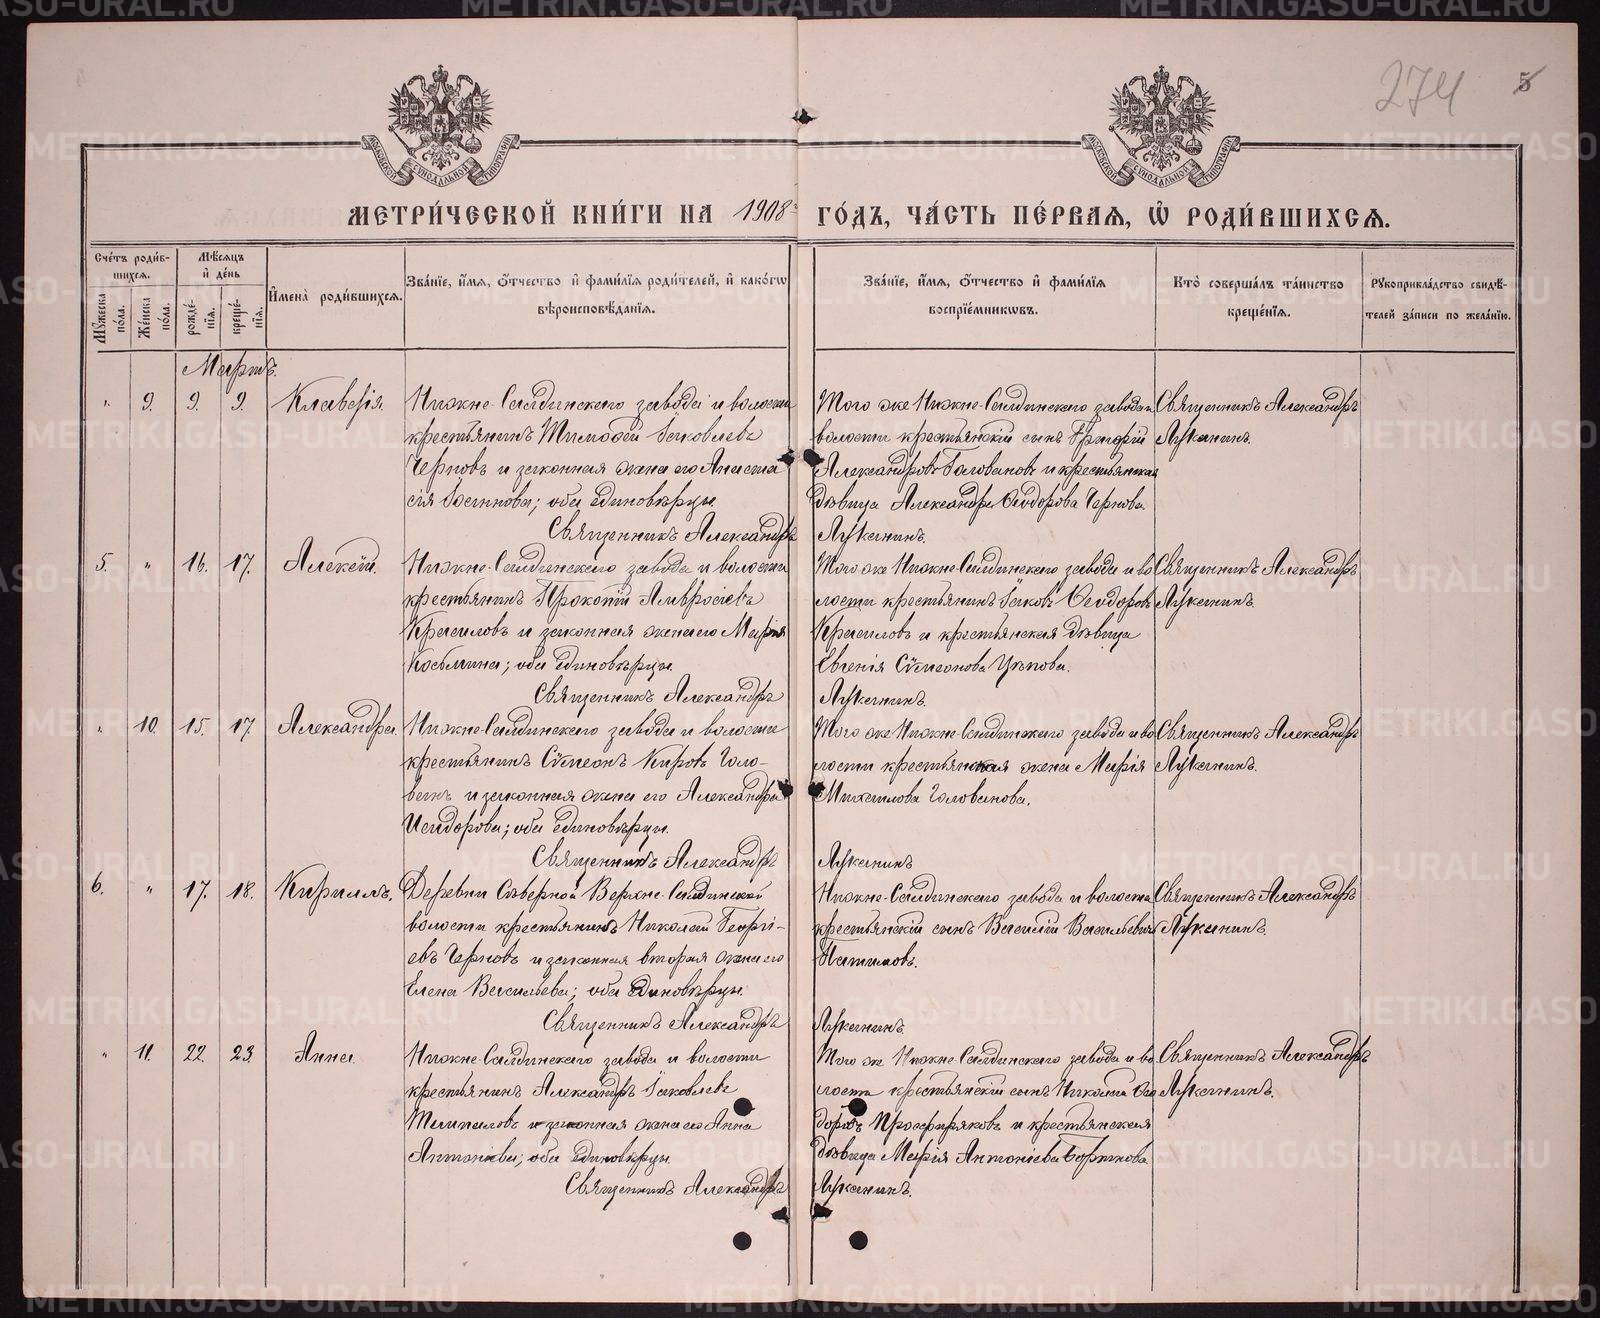 274 5
МЕТРИ́ЧЕСКОЙ КНИ́ГИ НА 1908 ГО́ДЪ, ЧА́СТЬ ПЕ́РВАЯ, Ѡ҆ РОДИ́ВШИХСЯ.
Сче́тъ роди́вшихся.
Му́жеска по́ла.
Же́нска по́ла.
Мѣ́сяцъ и҆ де́нь
рожде́нїя.
креще́нїя.
И҆мена̀ роди́вшихся.
Зва́нїе, и҆́мя, ѻ҆́тчество и҆ фами́лїя роди́телей, и҆ како́гѡ
вѣроисповѣ́данїя.
Зва́нїе, и҆́мя, ѻ҆́тчество и҆ фами́лїя
воспрїе́мникѡвъ.
Кто̀ соверша́лъ та́инство
креще́нїя.
Рꙋкоприкла́дство свидѣ́-
телей за́писи по жела́нїю.
Мартъ.
" 9. 9. 9. Клавдія.
Нижне-Салдинскаго завода и волости
крестьянинъ Тимоѳей Іаковлевъ
Черновъ и законная жена его Анаста
сія Іоаннова; оба единовѣрцы.
Священникъ Александръ Луканинъ.
Того же Нижне-Салдинскаго завода и
волости крестьянскій сынъ Григорій
Александровъ Головановъ и крестьянская
дѣвица Александра Ѳеодорова Чернова.
Священникъ Александръ
Луканинъ.
5. " 16. 17. Алексій.
Нижне-Салдинскаго завода и волости
крестьянинъ Прокопій Амвросіевъ
Крашиловъ и законная жена его Марія
Косьмина; оба единовѣрцы.
Священникъ Александръ Луканинъ.
Того же Нижне-Салдинскаго завода и во
лости крестьянинъ Іаковъ Ѳеодоровъ
и крестьянская дѣвица
Евгенія Сѵмеонова
Священникъ Александръ
Луканинъ.
" 10. 15. 17. Александра.
Нижне-Салдинскаго завода и волости
крестьянинъ Сѵмеонъ Кировъ Голо-
винъ и законная жена его Александра
Исидорова; оба единовѣрцы.
Священникъ Александръ Луканинъ
Того же Нижне-Салдинскаго завода и во
лости крестьянская жена Марія
Михаилова Голованова.
Священникъ Александръ
Луканинъ.
6. " 17. 18. Кириллъ.
Деревни Сѣверной Верхне-Салдинской
волости крестьянинъ Николай Георгі-
евъ Черновъ и законная вторая жена его
Елена Васильева; оба единовѣрцы.
Священникъ Александръ Луканинъ.
Нижне-Салдинскаго завода и волости
крестьянскій сынъ Василій Васильевичъ
Священникъ Александръ
Луканинъ.
" 11. 22. 23. Анна.
Нижне-Салдинскаго завода и волости
крестьянинъ Александръ Іаковлевъ
и законная жена его Анна
Антоніева; оба единовѣрцы.
Священникъ Александръ Луканинъ.
Того же Нижне-Салдинскаго завода и во
лости крестьянскій сынъ Николай Ѳео
доровъ и крестьянская
дѣвица Марія Антоніева
Священникъ Александръ
Луканинъ.
METRIKI.GASO-URAL.RU